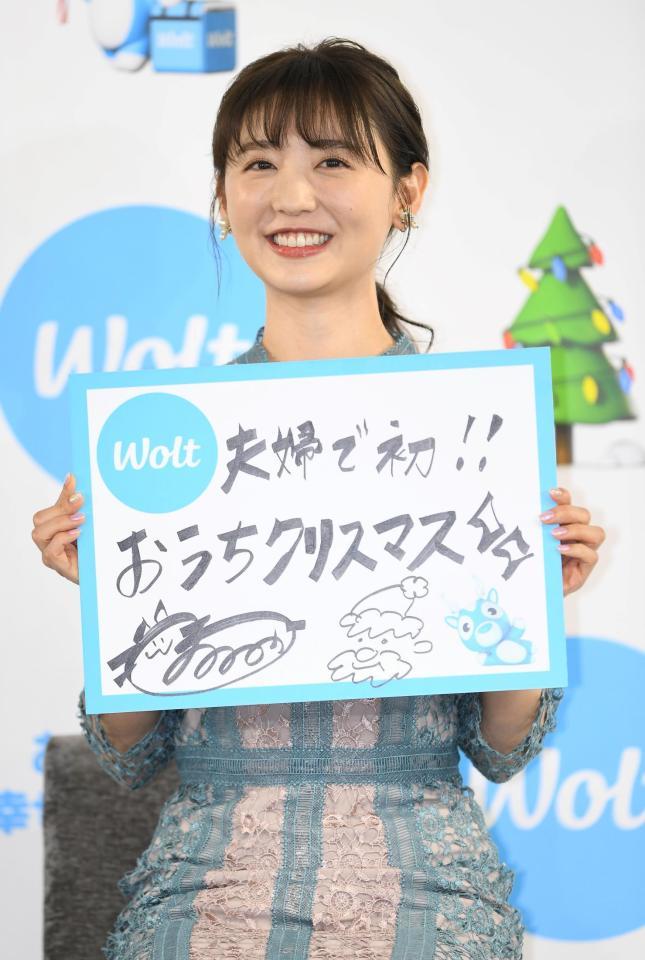 Wolt
Wolt
Wolt 夫婦で初!!
おうちクリスマス
Wolt